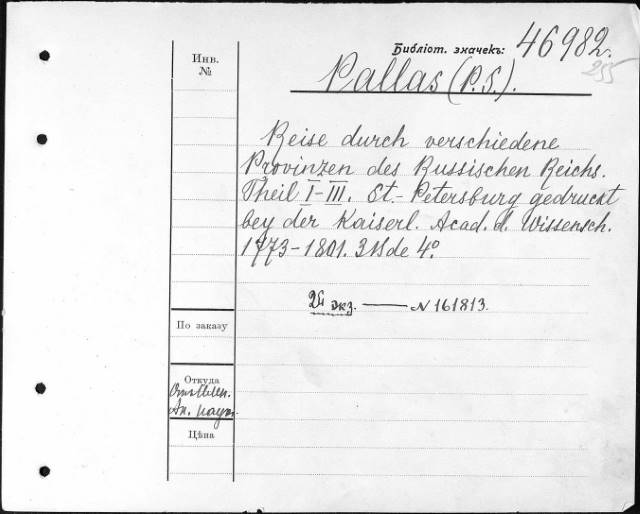 Библіот. значекъ: 46982.
255
Инв.
№
Pallas (P. S.).
Reise durch verschiedene
Provinzen des Russischen Reichs.
Theil I-III. St.-Petersburg gedruckt
bey der Kaiserl. Acad. d. Wissensch.
1773-1801. 3 Bde 4º
2й экз. — N 161813.
По заказу
Откуда
Ак. наук.
Цѣна